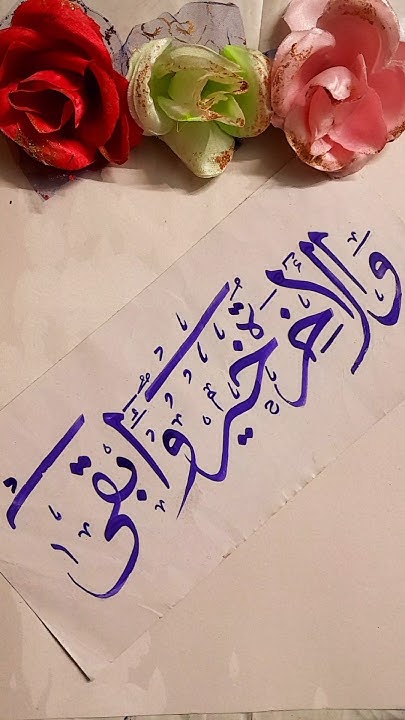 وَالْآخِرَةُ خَيْرٌ وَأَبْقَىٰ